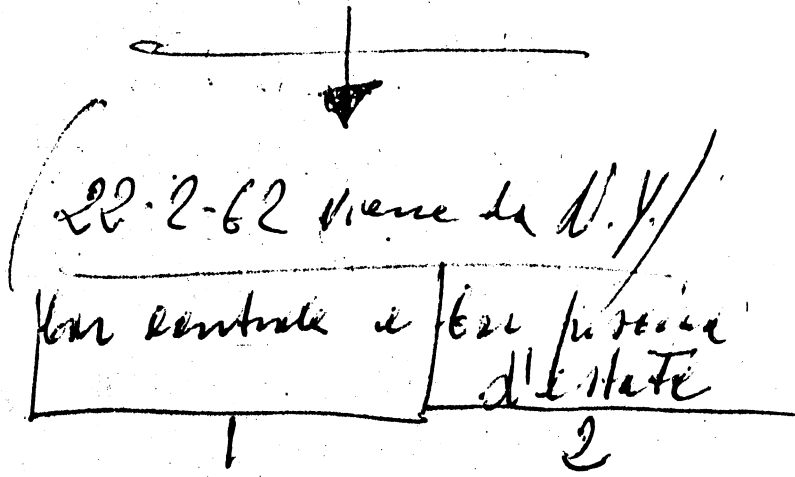 (22-2-62 viene da N.Y.)
bar centrale e bar piscina
d'estate
1 2